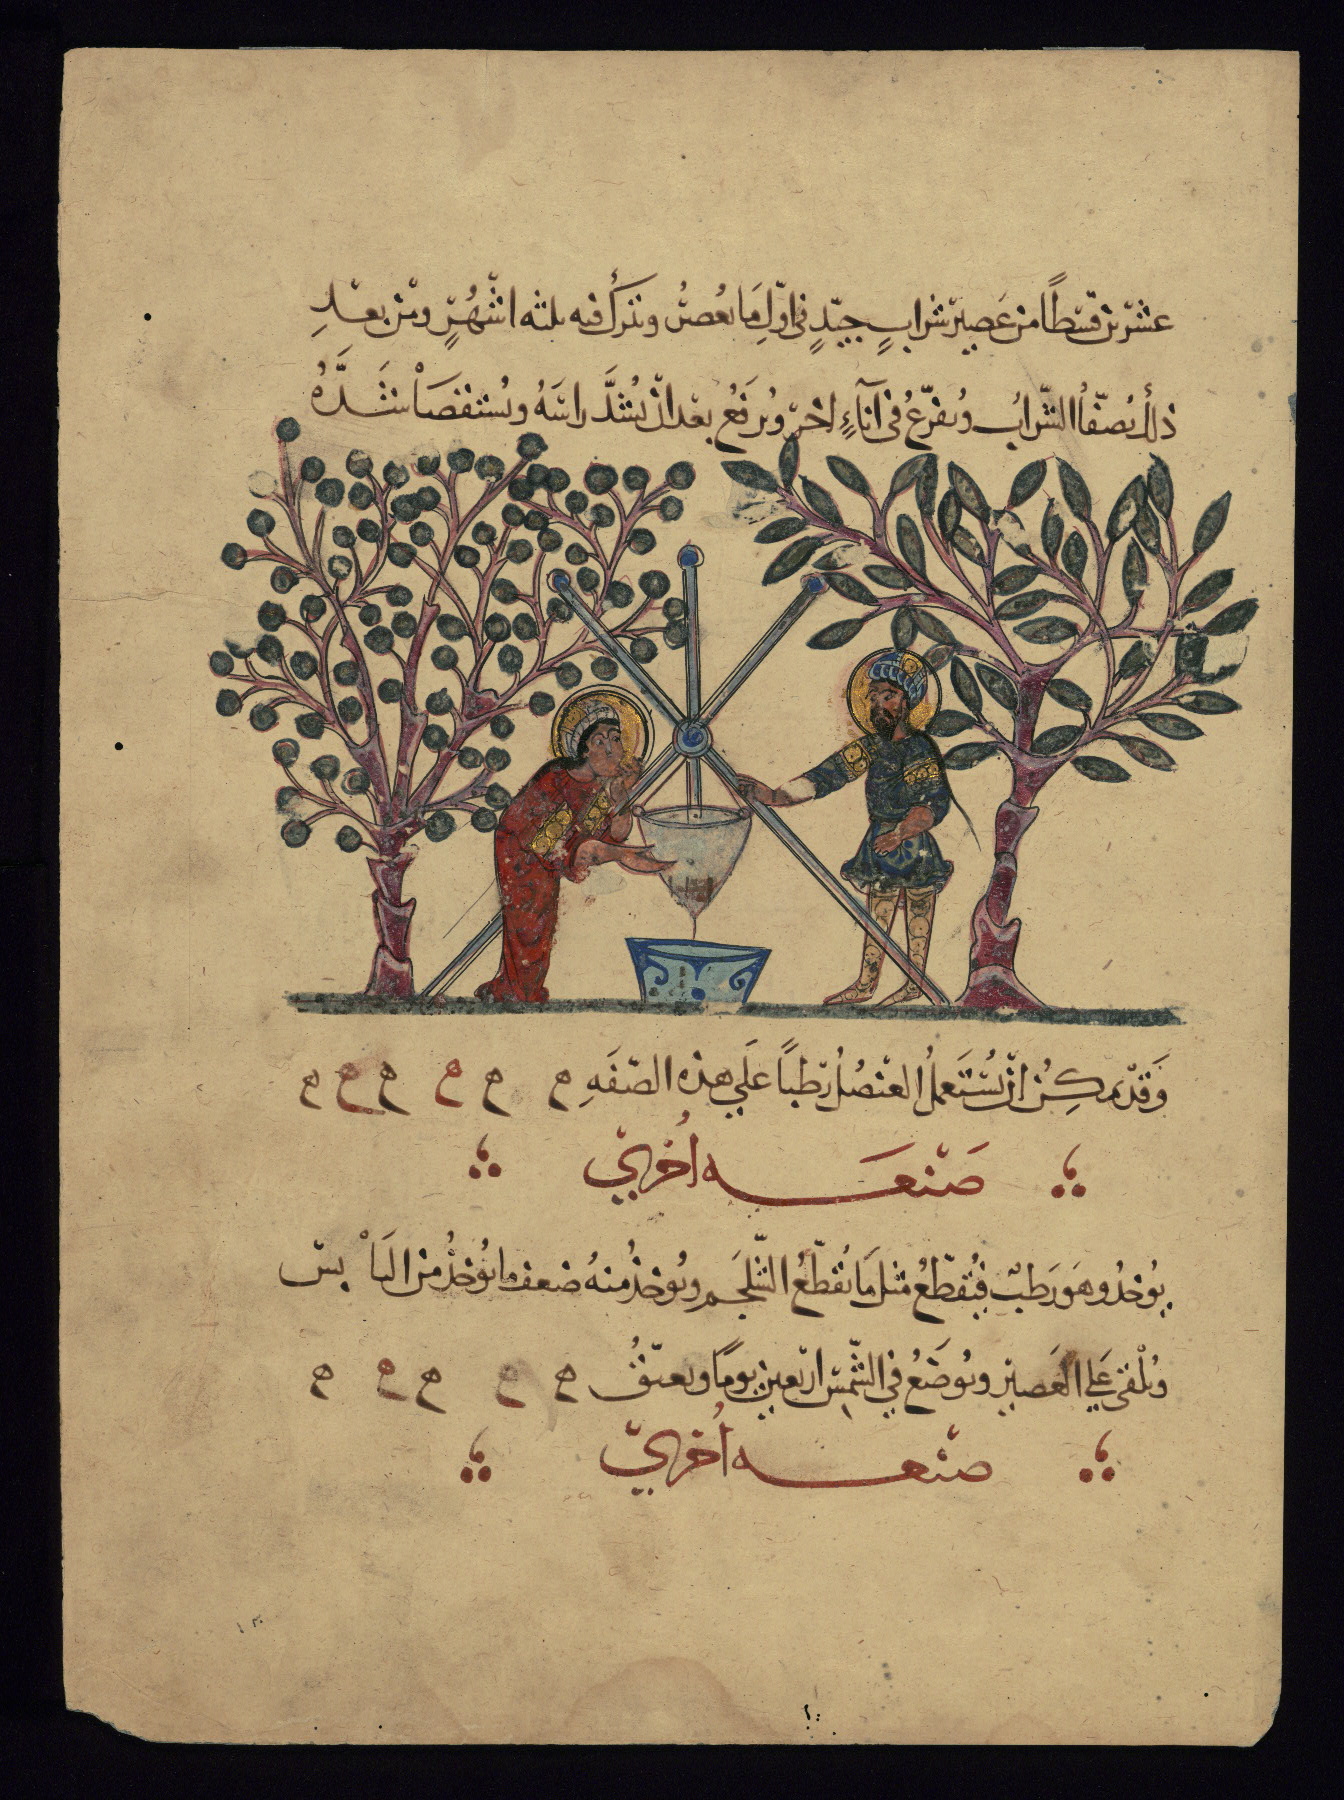 عشرين قسطًا من عَصِير شرابٍ جيّدٍ في اوّلِ مَا يُعصرُ ويترَكُ فيه ثلثه اشْهُرٍ ومن بعدِ
ذلك يُصفّا الشّرابُ ويُفرّغُ في آناءٍ اخر ويُرفَعُ بعد ان يُشدَّ راسَهُ ويُستقصَا شَدَّهُ
وَقَد يمكِنُ ان يُسْتَعملُ العنصُلُ رَطبًا عَلَي هذه الصّفَهِ ه ه ه ه ه ه
صَنعَــه اُخري
يُوخذُ وهَو رَطبٌ فيُقطّعُ مثل مَا يُقطّعُ الشّلجَم ويُوخذُ منهُ ضعف ما يُوخذُ من اليَابس
ويُلْقي عَلي العَصِير ويُوضَعُ في الشّمس اربعين يومًا ويعتّقُ ه ه ه ه ه
صنعــه اُخري